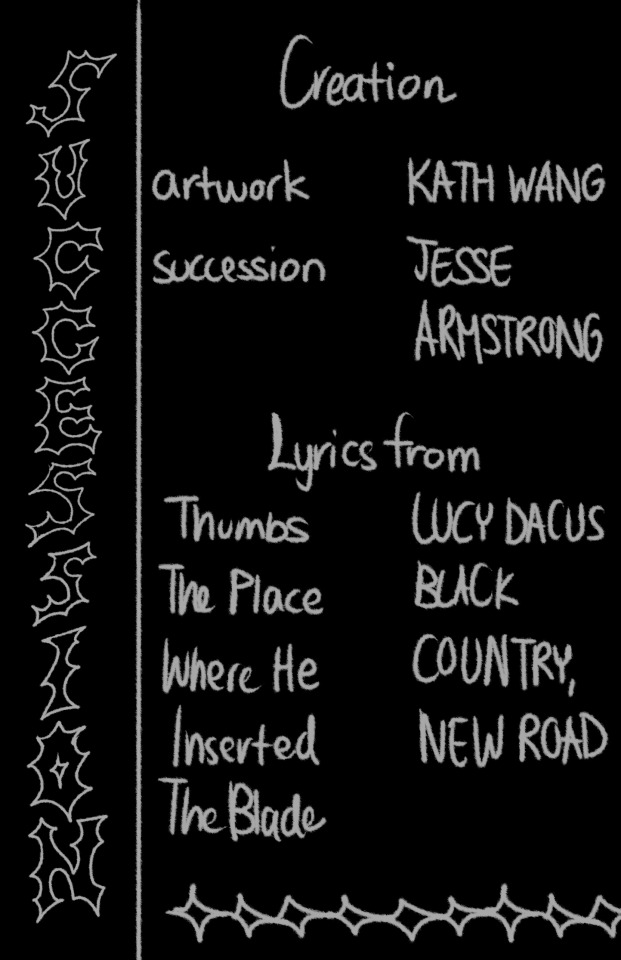 SUCCESSION
Creation
artwork KATH WANG
succession JESSE
ARMSTRONG
Lyrics from
Thumbs LUCY DACUS
The Place BLACK
Where He COUNTRY,
Inserted NEW ROAD
The Blade